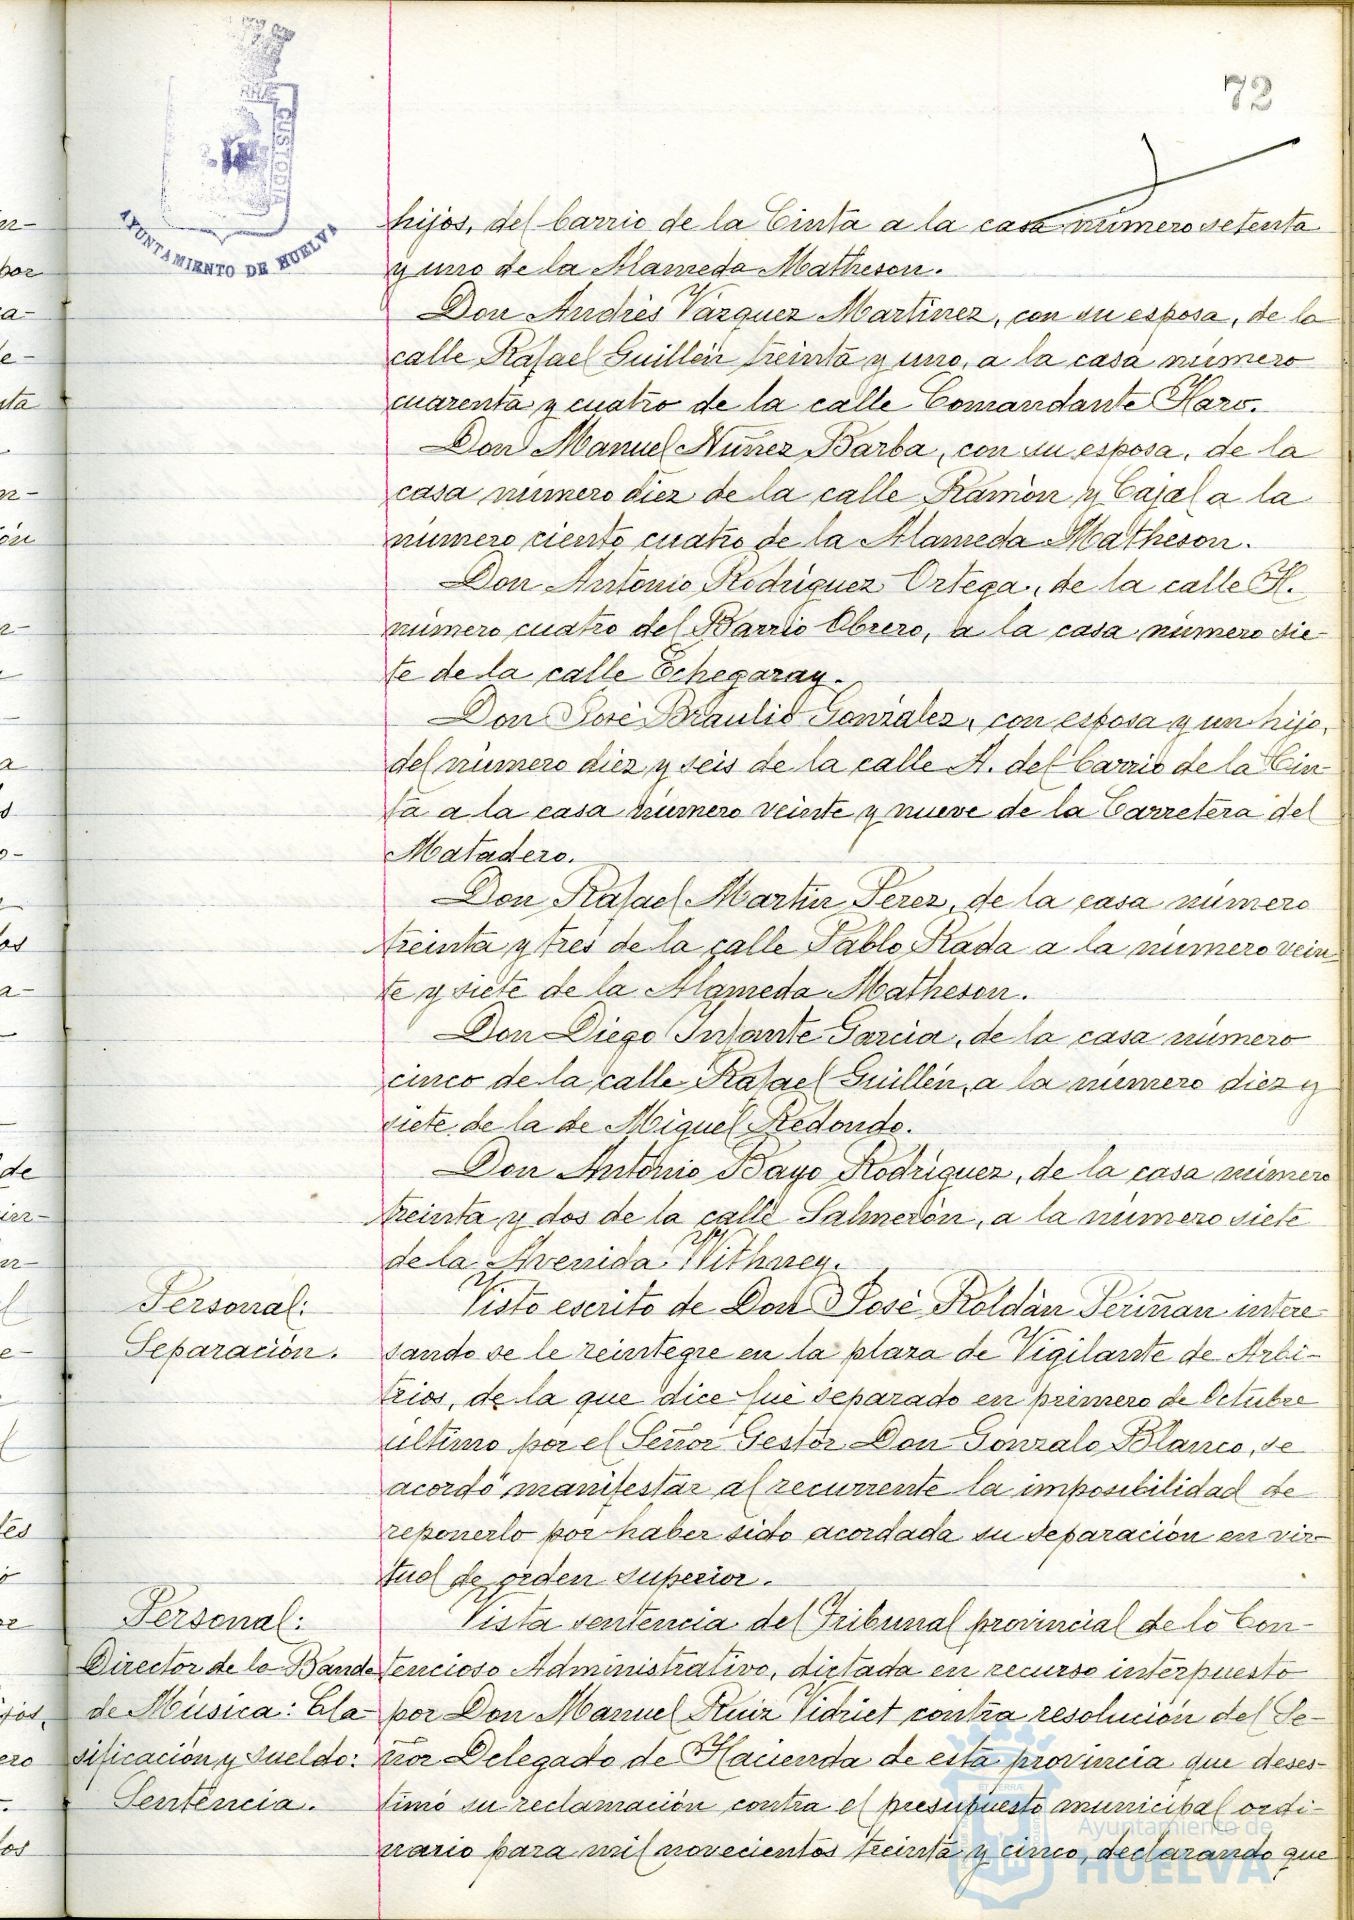 72
RRÆ
CUSTODIA
AYUNTAMIENTO DE HUELVA
hijos, del barrio de la Cinta a la casa número setenta
y uno de la Alameda Matheson.
Don Andrés Vázquez Martínez, con su esposa, de la
calle Rafael Guillén treinta y uno, a la casa número
cuarenta y cuatro de la calle Comandante Haro.
Don Manuel Núñez Barba, con su esposa, de la
casa número diez de la calle Ramón y Cajal a la
número ciento cuatro de la Alameda Matheson.
Don Antonio Rodríguez Ortega, de la calle H.
número cuatro del Barrio Obrero, a la casa número sie-
te de la calle Echegaray.
Don José Braulio González, con esposa y un hijo,
del número diez y seis de la calle A. del barrio de la Cin-
ta a la casa número veinte y nueve de la Carretera del
Matadero.
Don Rafael Martín Pérez, de la casa número
treinta y tres de la calle Pablo Rada a la número vein-
te y siete de la Alameda Matheson.
Don Diego Infante García, de la casa número
cinco de la calle Rafael Guillén, a la número diez y
siete de la de Miguel Redondo.
Don Antonio Bayo Rodríguez, de la casa número
treinta y dos de la calle Salmerón, a la número siete
de la Avenida Withney.
Personal:
Separación.
Visto escrito de Don José Roldán Periñan intere-
sando se le reintegre en la plaza de Vigilante de Arbi-
trios, de la que dice fué separado en primero de Octubre
último por el Señor Gestor Don Gonzalo Blanco, se
acordó manifestar al recurrente la imposibilidad de
reponerlo por haber sido acordada su separación en vir-
tud de orden superior.
Personal:
Director de la Banda
de Música: Cla-
sificación y sueldo:
Sentencia.
Vista sentencia del Tribunal provincial de lo Con-
tencioso Administrativo, dictada en recurso interpuesto
por Don Manuel Ruiz Vidriet contra resolución del Se-
ñor Delegado de Hacienda de esta provincia que deses-
timó su reclamación contra el presupuesto municipal ordi-
nario para mil novecientos treinta y cinco, declarando que
Ayuntamiento de
HUELVA